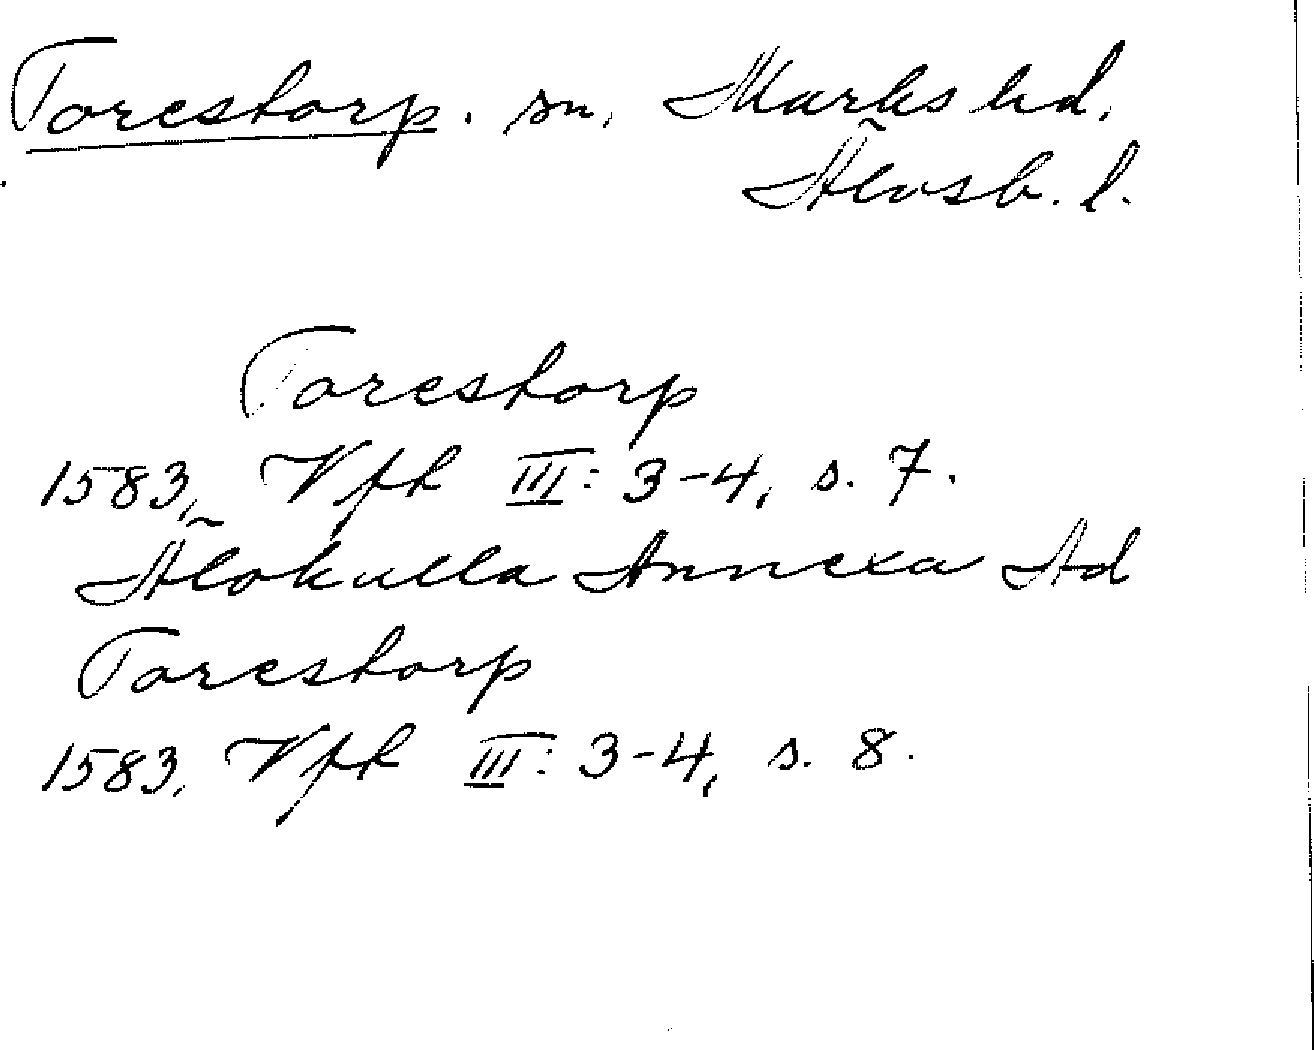 Torestorp. sn, Marks hd.
Älvsb. l.
Torestorp
1583, Vfh III: 3-4, s. 7.
Älokulla Annexa Ad
Torestorp
1583, Vfh III: 3-4, s. 8.